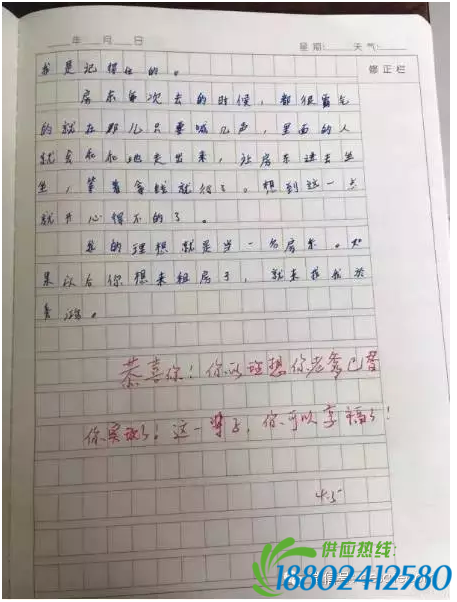 年 月 日 星期: 天气:
修正栏
我是记得住的。
房东每次去的时候，都很霸气
的就在那儿只要喊几声，里面的人
就会和和地走出来，让房东进去坐
坐，等着拿钱就行了。想到这一点
就开心得不的了。
我的理想就是当一名房东。如
果以后你想来租房子，就来找我
黄鸿。
恭喜你！你的理想你老爹已替
你实现了！这一辈子，你可以享福了！
4.5
供应热线:
18802412580